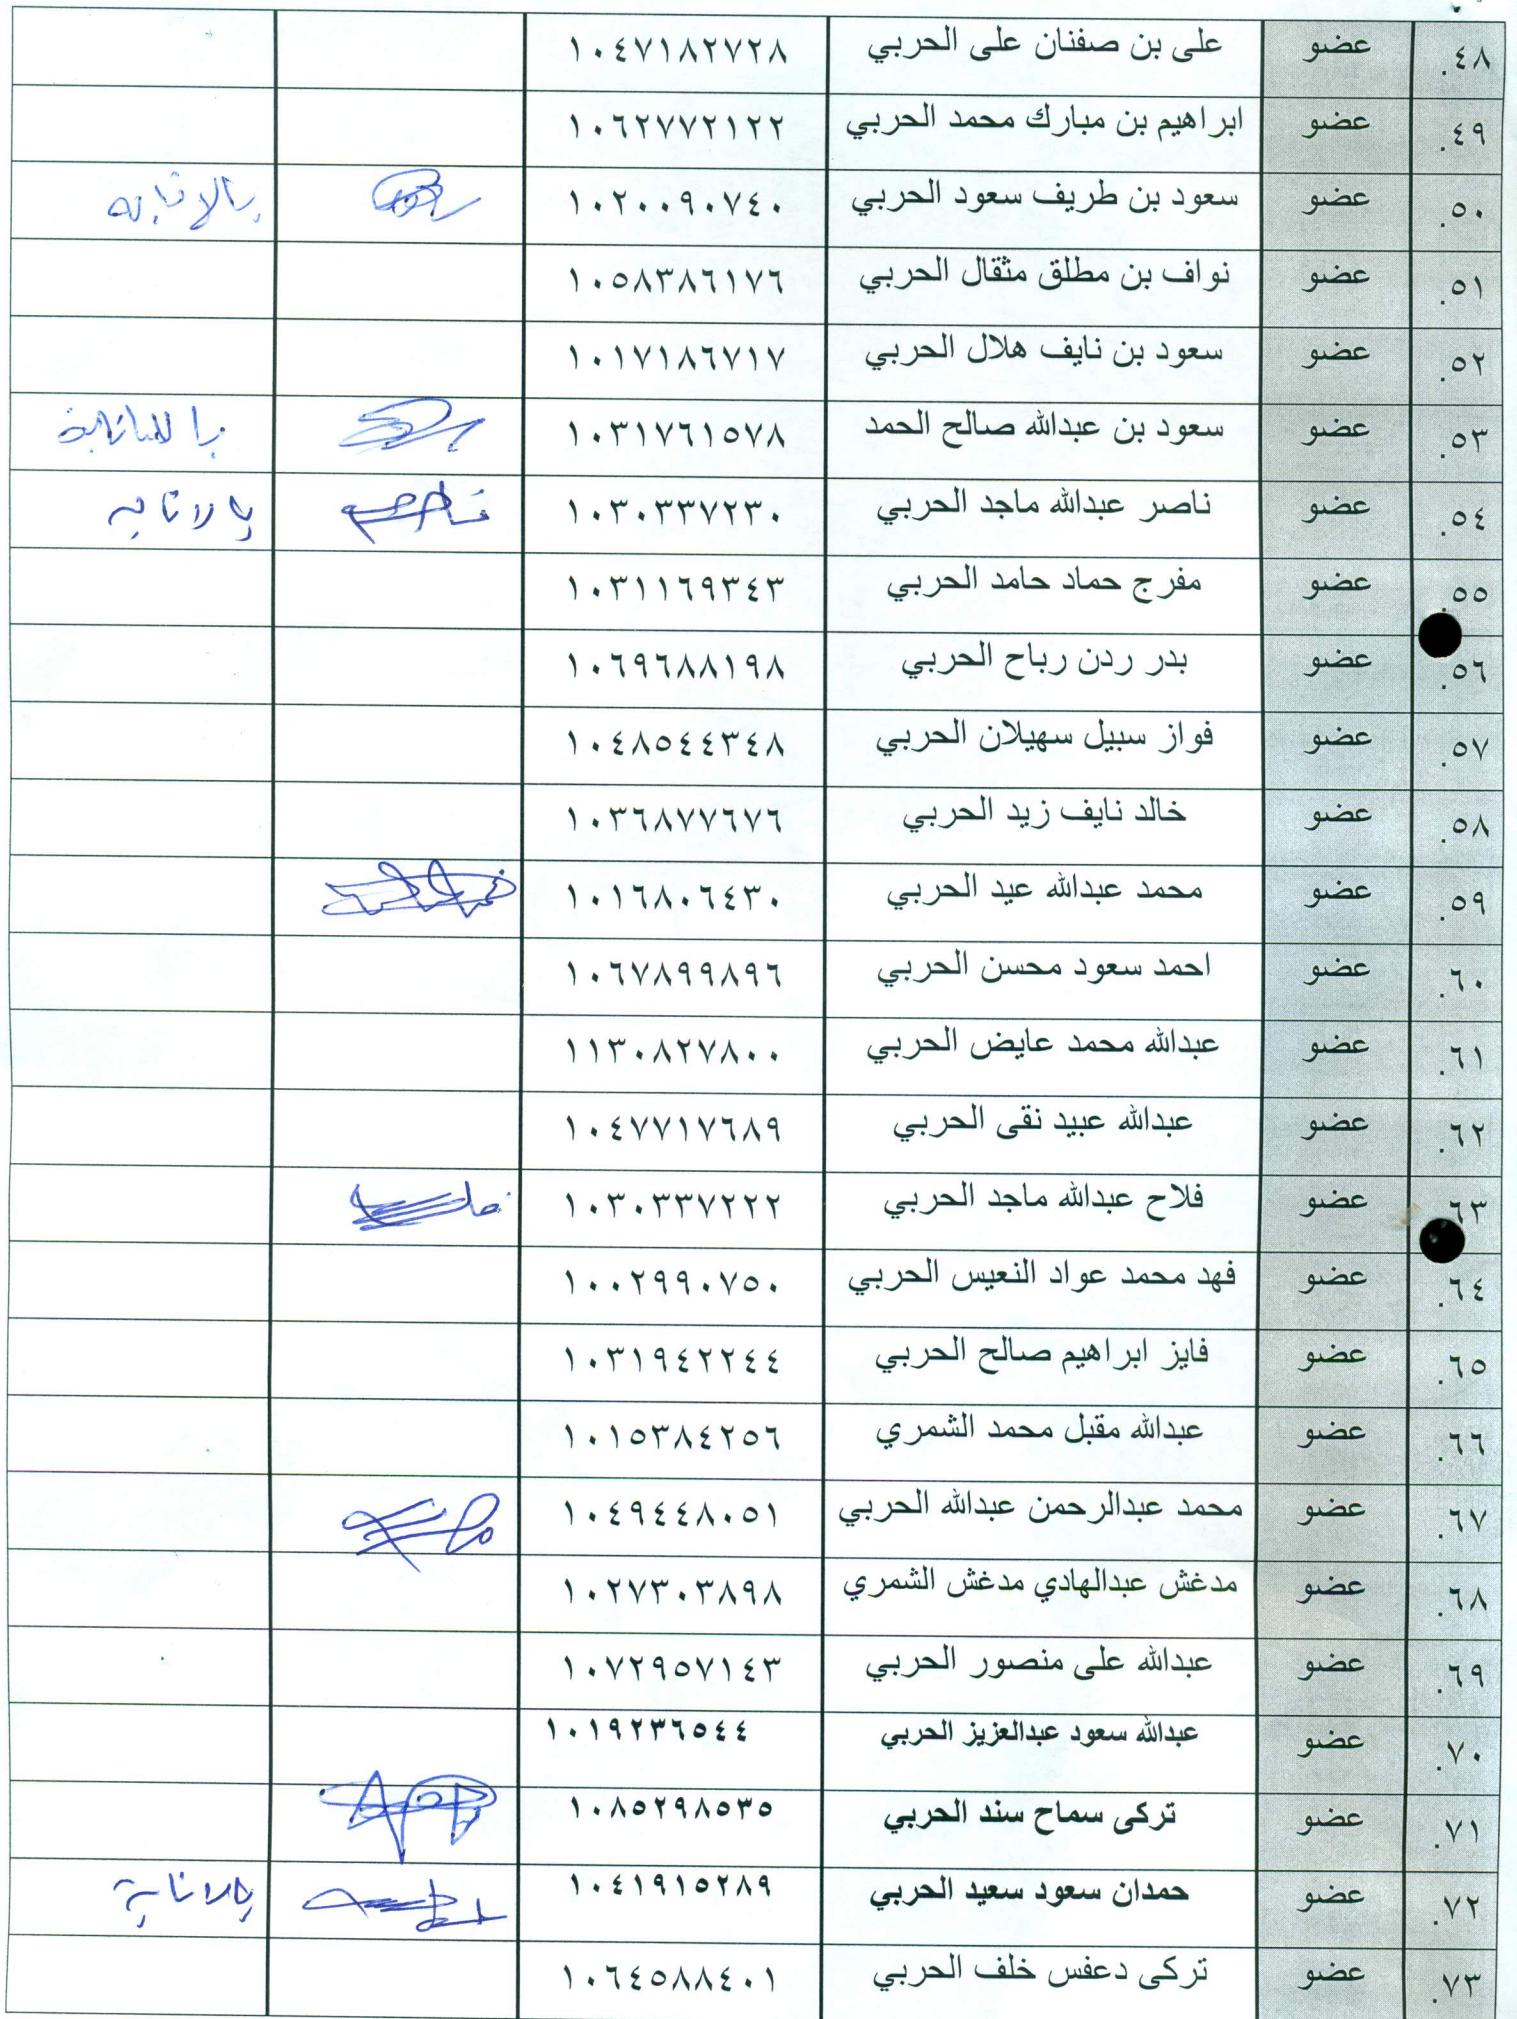 ٤٨. عضو على بن صفنان على الحربي ١٠٤٧١٨٢٧٢٨
٤٩. عضو ابراهيم بن مبارك محمد الحربي ١٠٦٢٧٧٢١٢٢
٥٠. عضو سعود بن طريف سعود الحربي ١٠٢٠٠٩٠٧٤٠ بالانابه
٥١. عضو نواف بن مطلق مثقال الحربي ١٠٥٨٣٨٦١٧٦
٥٢. عضو سعود بن نايف هلال الحربي ١٠١٧١٨٦٧١٧
٥٣. عضو سعود بن عبدالله صالح الحمد ١٠٣١٧٦١٥٧٨
٥٤. عضو ناصر عبدالله ماجد الحربي ١٠٣٠٣٣٧٢٣٠ بالانابه
٥٥. عضو مفرج حماد حامد الحربي ١٠٣١١٦٩٣٤٣
٥٦. عضو بدر ردن رباح الحربي ١٠٦٩٦٨٨١٩٨
٥٧. عضو فواز سبيل سهيلان الحربي ١٠٤٨٥٤٤٣٤٨
٥٨. عضو خالد نايف زيد الحربي ١٠٣٦٨٧٧٦٧٦
٥٩. عضو محمد عبدالله عيد الحربي ١٠١٦٨٠٦٤٣٠
٦٠. عضو احمد سعود محسن الحربي ١٠٦٧٨٩٩٨٩٦
٦١. عضو عبدالله محمد عايض الحربي ١١٣٠٨٢٧٨٠٠
٦٢. عضو عبدالله عبيد نقى الحربي ١٠٤٧٧١٧٦٨٩
٦٣. عضو فلاح عبدالله ماجد الحربي ١٠٣٠٣٣٧٢٢٢
٦٤. عضو فهد محمد عواد النعيس الحربي ١٠٠٢٩٩٠٧٥٠
٦٥. عضو فايز ابراهيم صالح الحربي ١٠٣١٩٤٢٢٤٤
٦٦. عضو عبدالله مقبل محمد الشمري ١٠١٥٣٨٤٢٥٦
٦٧. عضو محمد عبدالرحمن عبدالله الحربي ١٠٤٩٤٤٨٠٥١
٦٨. عضو مدغش عبدالهادي مدغش الشمري ١٠٢٧٣٠٣٨٩٨
٦٩. عضو عبدالله على منصور الحربي ١٠٧٢٩٥٧١٤٣
٧٠. عضو عبدالله سعود عبدالعزيز الحربي ١٠١٩٢٣٦٥٤٤
٧١. عضو تركى سماح سند الحربي ١٠٨٥٢٩٨٥٣٥
٧٢. عضو حمدان سعود سعيد الحربي ١٠٤١٩١٥٢٨٩ بالانابة
٧٣. عضو تركى دعفس خلف الحربي ١٠٦٤٥٨٨٤٠١